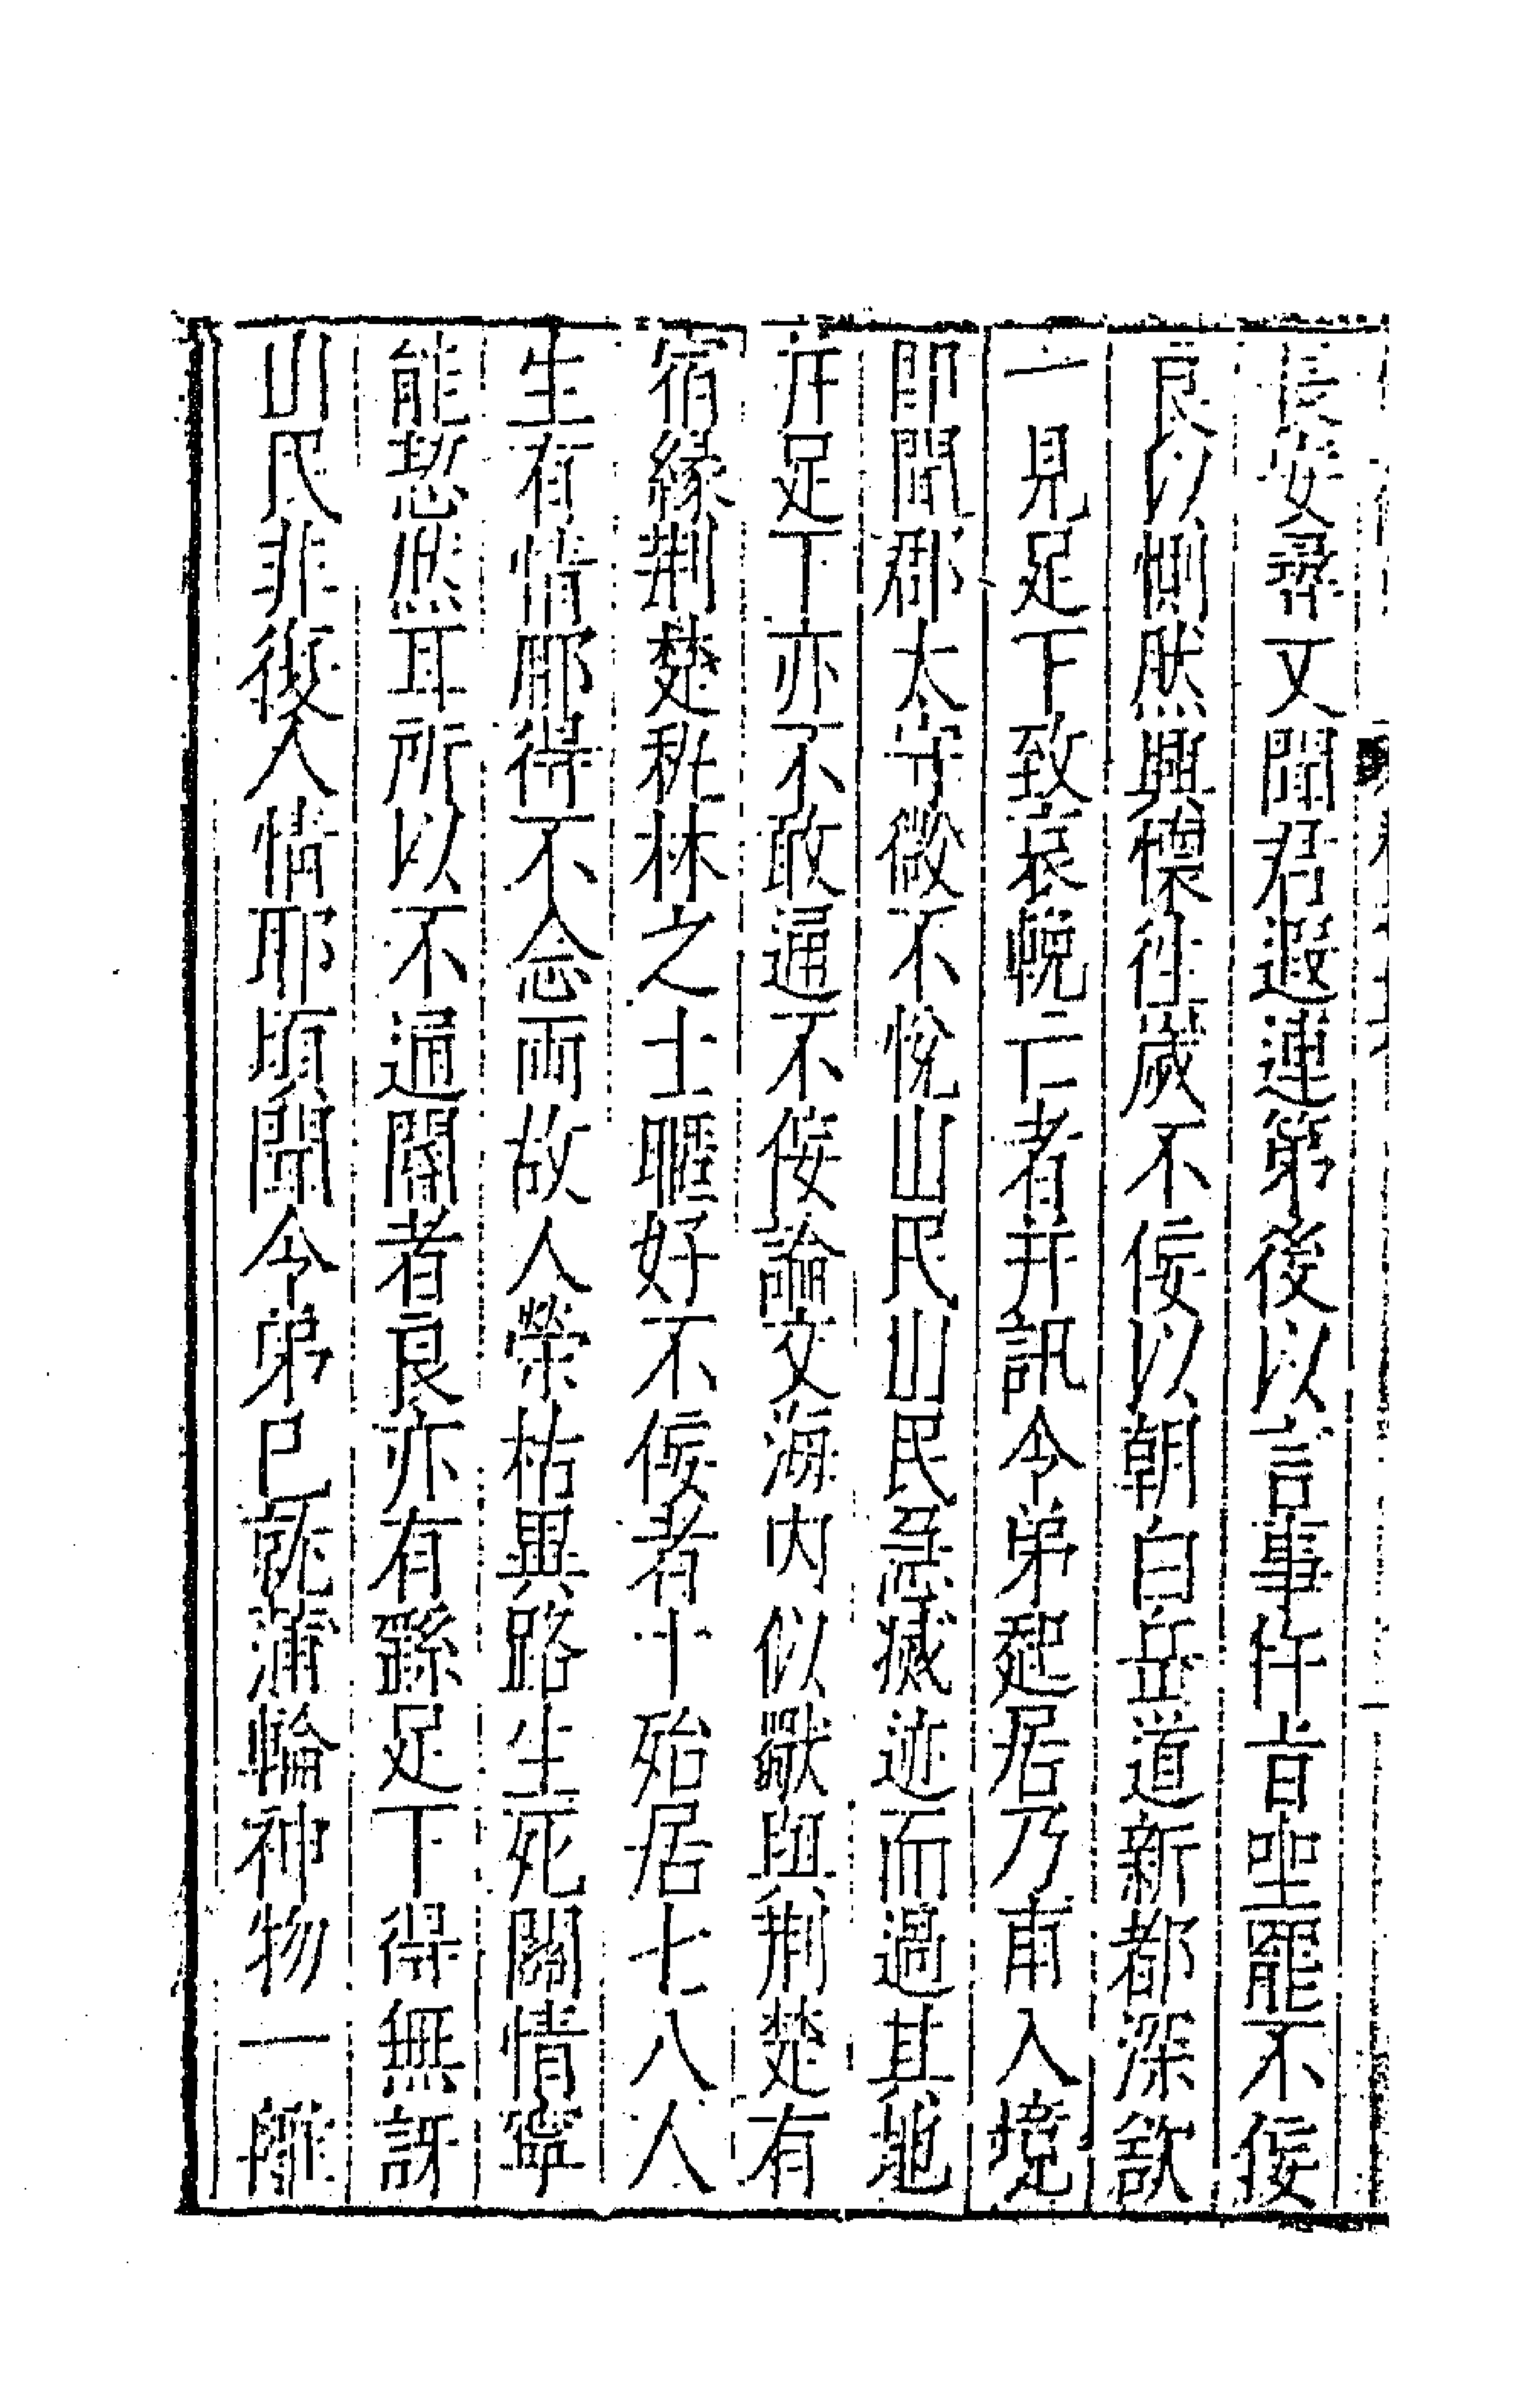 長安尋又聞君遐連第後以言事仵㫖聖罷不佞
良以惻然興懷往歲不佞以朝白岳道新都深欲
一見足下致哀悅亡者并訊令弟起居乃甫入境
即聞郡太守微不悅山民山民急㓕迹而過其地
并足下亦不敢通不佞論文海内似獨與荆楚有
宿緣荆楚秕林之士暱好不佞者十殆居七八人
生有情那得不念而故人榮枯異路生死關情寧
能恝然耳所以不通闊者良亦有繇足下得無訝
山民非復人情耶頃聞令弟已就蒲輪神物一離